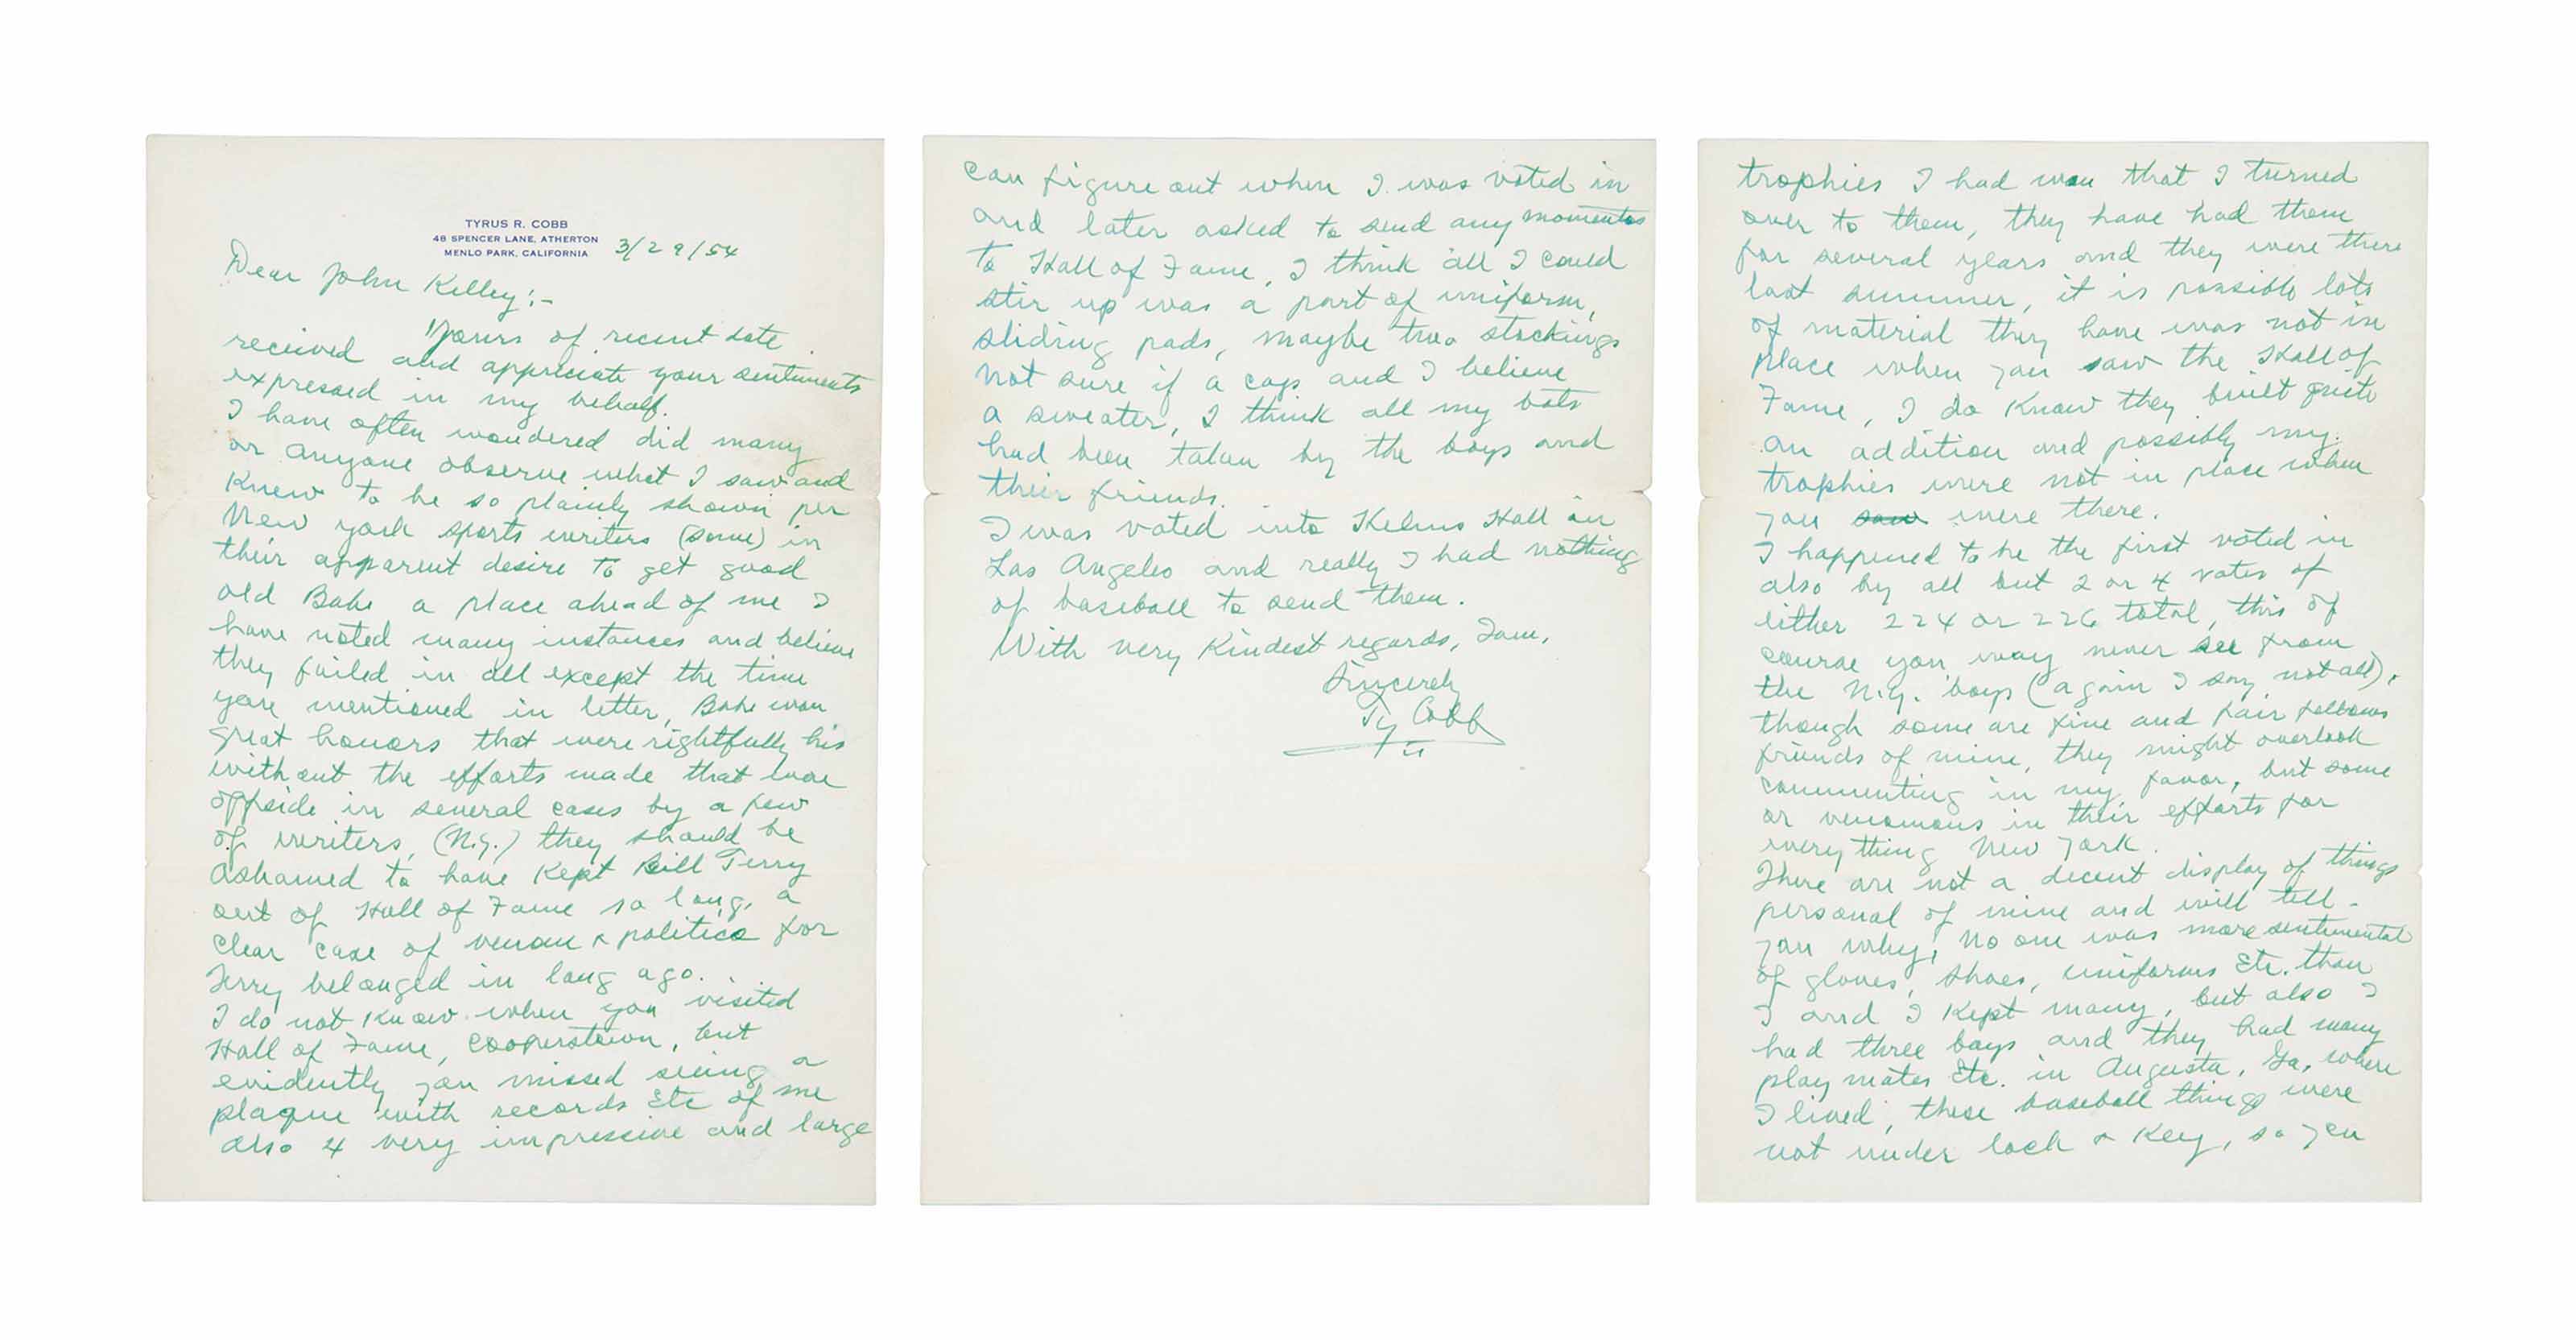 TYRUS R. COBB
48 SPENCER LANE, ATHERTON
MENLO PARK, CALIFORNIA
3/29/54
Dear John Kelley:-
Yours of recent date
received and appriciate your sentiments
expressed in my behalf.
I have often wondered did many
or anyone observe what I saw and
Knew to be so plainly shown per
New york sports writers (some) in
their apparent desire to get good
old Babe a place ahead of me I
have noted many instances and believe
they failed in all except the time
you mentioned in letter, Babe won
great honors that were rightfully his
without the efforts made that were
offside in several cases by a few
of writers, (N.y.) they should be
ashamed to have Kept Bill Terry
out of Hall of Fame so long, a
clear case of venom & politics for
Terry belonged in long ago.
I do not Know when you visited
Hall of Fame, Cooperstown, but
evidently you missed seeing a
plaque with records Etc of me
also 4 very impressive and large
trophies I had won that I turned
over to them, they have had them
for several years and they were there
last summer, it is possible lots
of material they have was not in
place when you saw the Hall of
Fame, I do Know they built quite
an addition and possibly my
trophies were not in place when
you saw were there.
I happened to be the first voted in
also by all but 2 or 4 votes of
either 224 or 226 total, this of
course you may never see from
the N.y. boys (again I say not all),
though some are fine and fair fellows
friends of mine, they might overlook
commenting in my favor, but some
or venomous in their efforts for
everything New York.
There are not a decent display of things
personal of mine and will tell
you why, No one was more sentimental
of gloves, shoes, uniforms Etc. than
I and I Kept many, but also I
had three boys and they had many
play mates Etc. in Augusta, Ga, where
I lived, these baseball things were
not under lock & Key, so you
can figure out when I was voted in
and later asked to send any momentos
to Hall of Fame, I think all I could
stir up was a part of uniform,
sliding pads, maybe two stockings
not sure if a cap and I believe
a sweater, I think all my bats
had been taken by the boys and
their friends.
I was voted into Helms Hall in
Los Angeles and really I had nothing
of baseball to send them.
With very Kindest regards, I am,
Sincerely
Ty Cobb